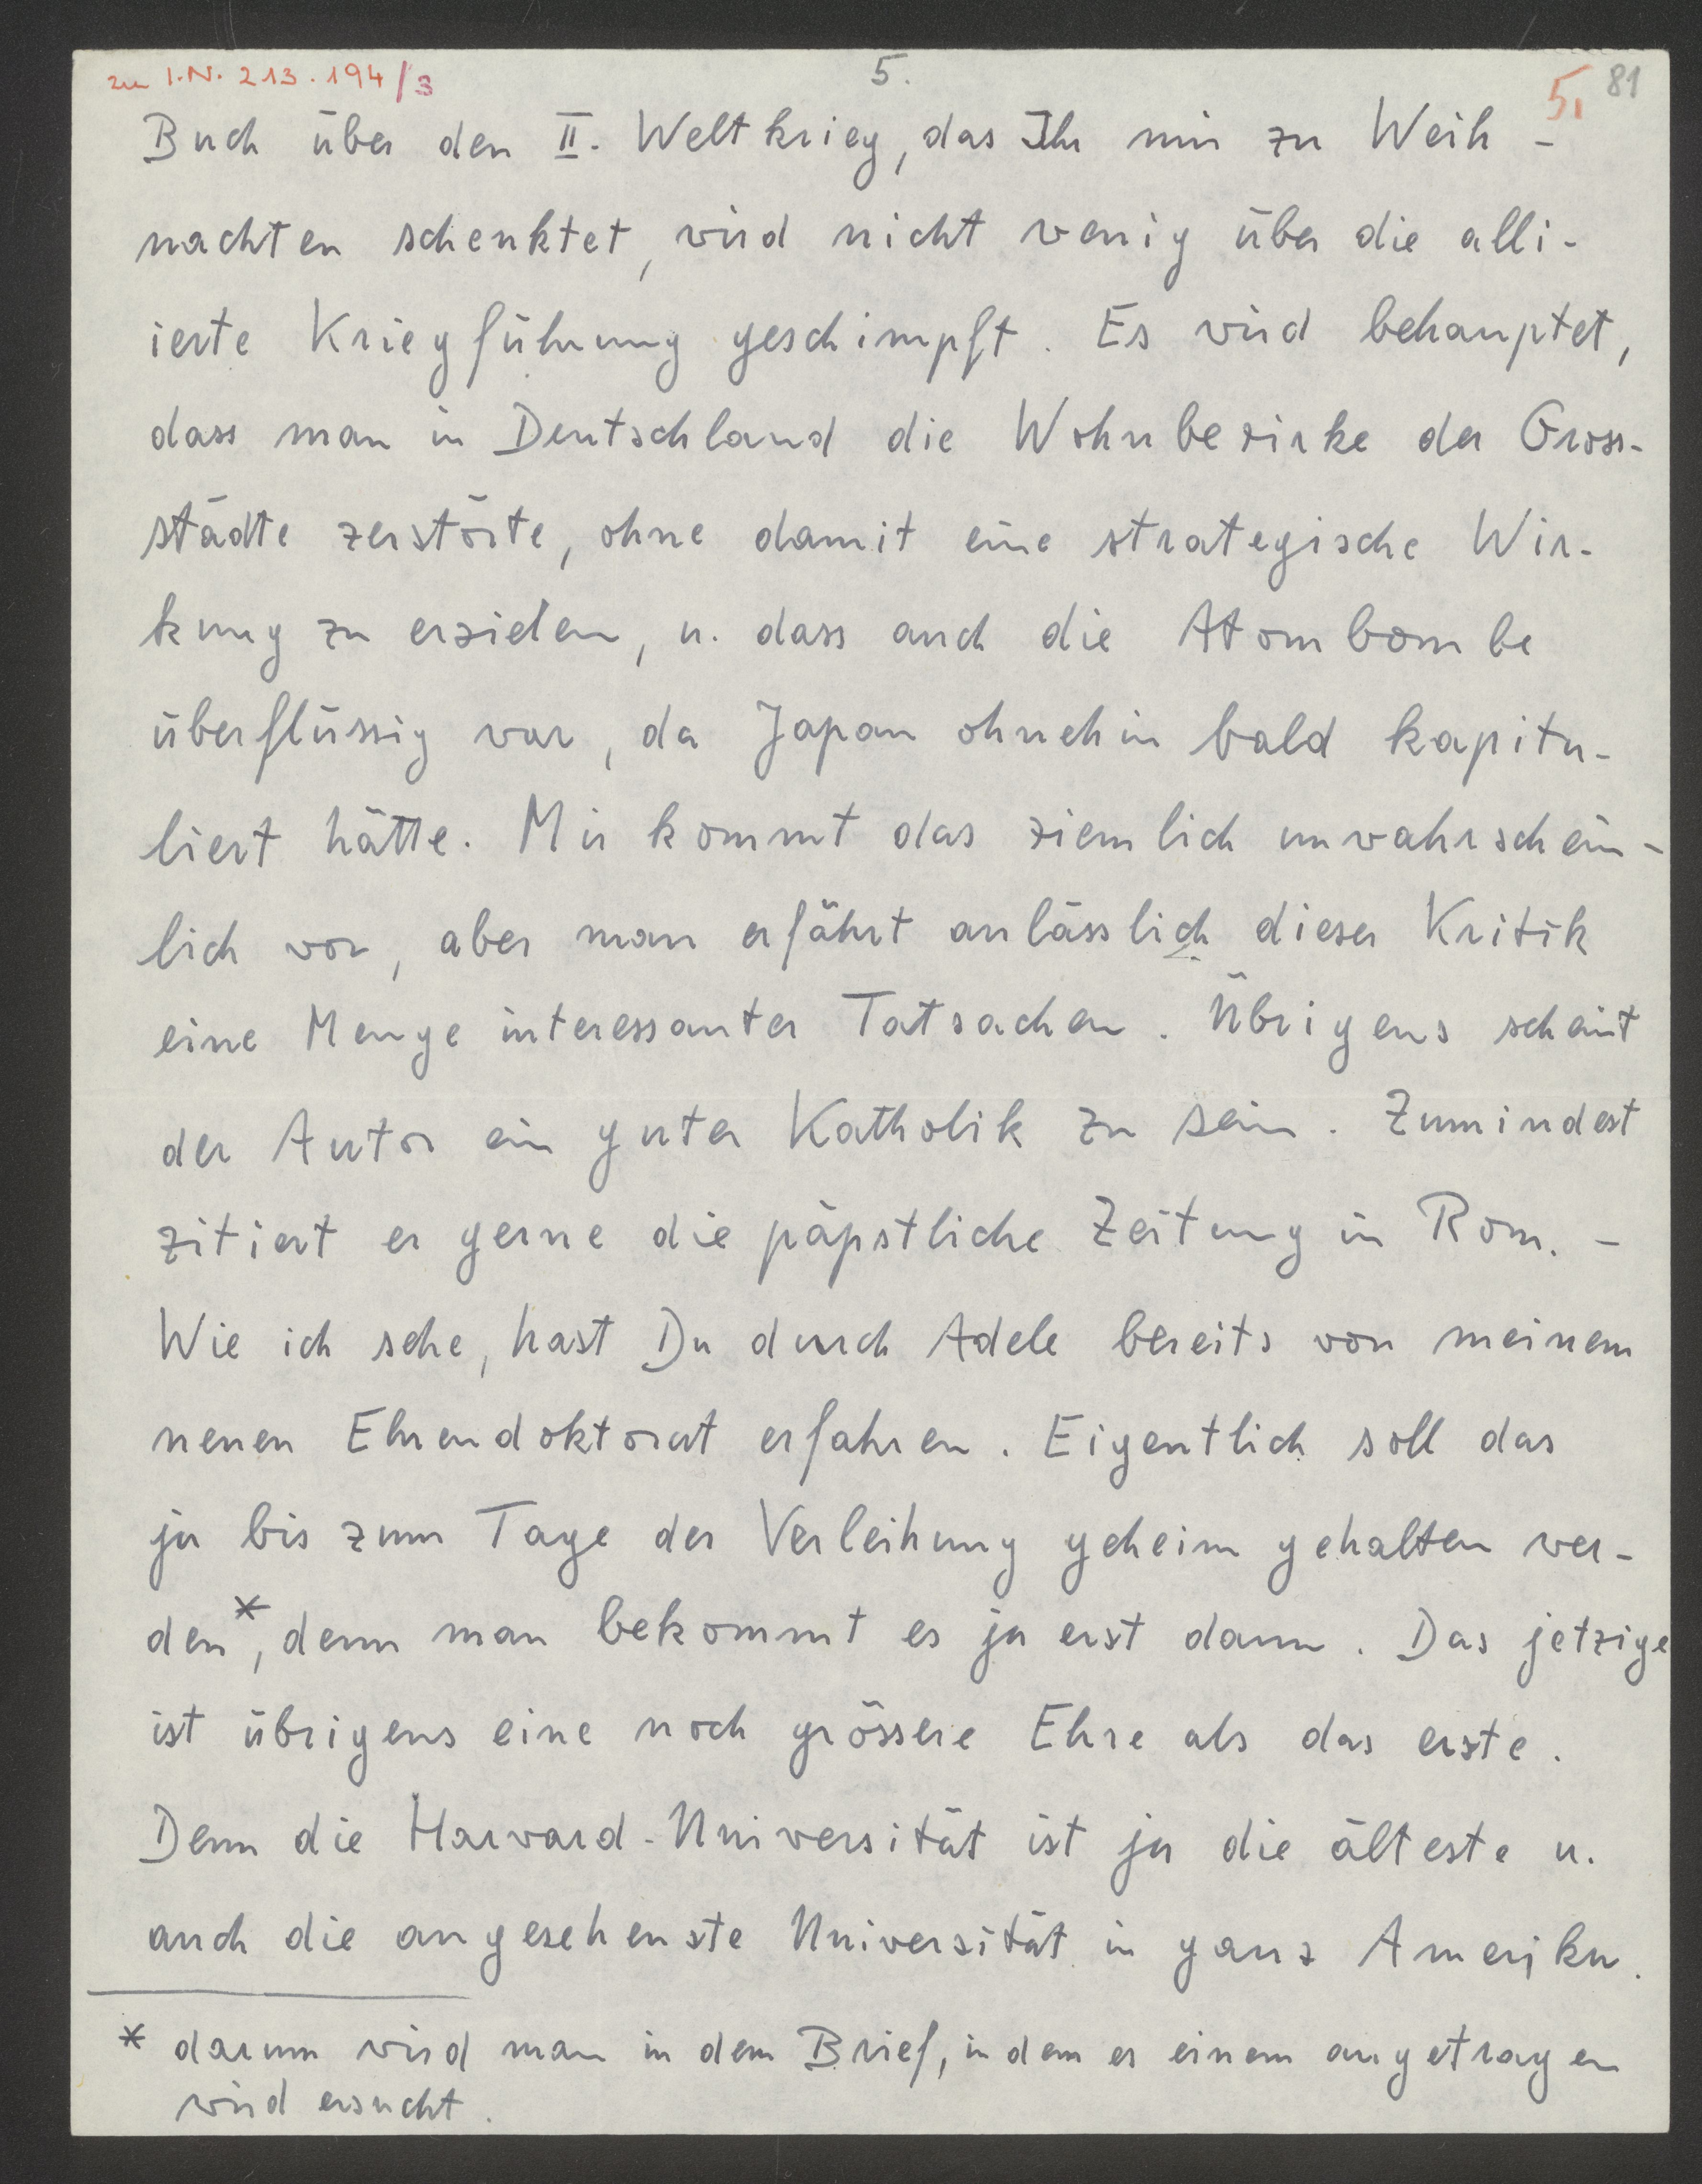 zu I.N. 213.194/3
5.
5. 81
Buch über den II. Weltkrieg, das Ihr mir zu Weih-
nachten schenktet, wird nicht wenig über die alli-
ierte Kriegführung geschimpft. Es wird behauptet,
dass man in Deutschland die Wohnbezirke der Gross-
städte zerstörte, ohne damit eine strategische Wir-
kung zu erzielen, u. dass auch die Atombombe
überflüssig war, da Japan ohnehin bald kapitu-
liert hätte. Mir kommt das ziemlich unwahrschein-
lich vor, aber man erfährt anlässlich dieser Kritik
eine Menge interessanter Tatsachen. Übrigens scheint
der Autor ein guter Katholik zu sein. Zumindest
zitiert er gerne die päpstliche Zeitung in Rom. –
Wie ich sehe, hast Du durch Adele bereits von meinem
neuen Ehrendoktorat erfahren. Eigentlich soll das
ja bis zum Tage der Verleihung geheim gehalten wer-
den*, denn man bekommt es ja erst dann. Das jetzige
ist übrigens eine noch grössere Ehre als das erste.
Denn die Harvard-Universität ist ja die älteste u.
auch die angesehenste Universität in ganz Amerika.
* darum wird man in dem Brief, in dem er einem angetragen
wird ersucht.